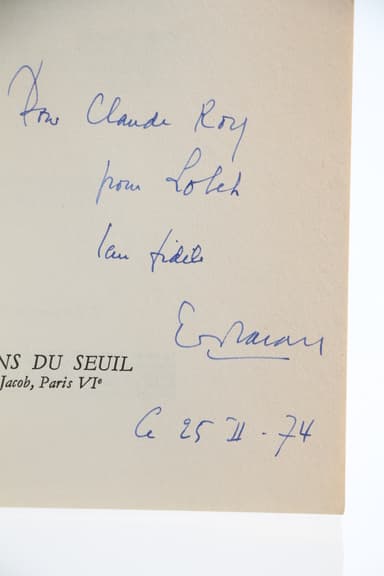 Pour Claude Roy
pour Loleh
leur fidèle
NS DU SEUIL
Jacob, Paris VIe
Ce 25 II - 74